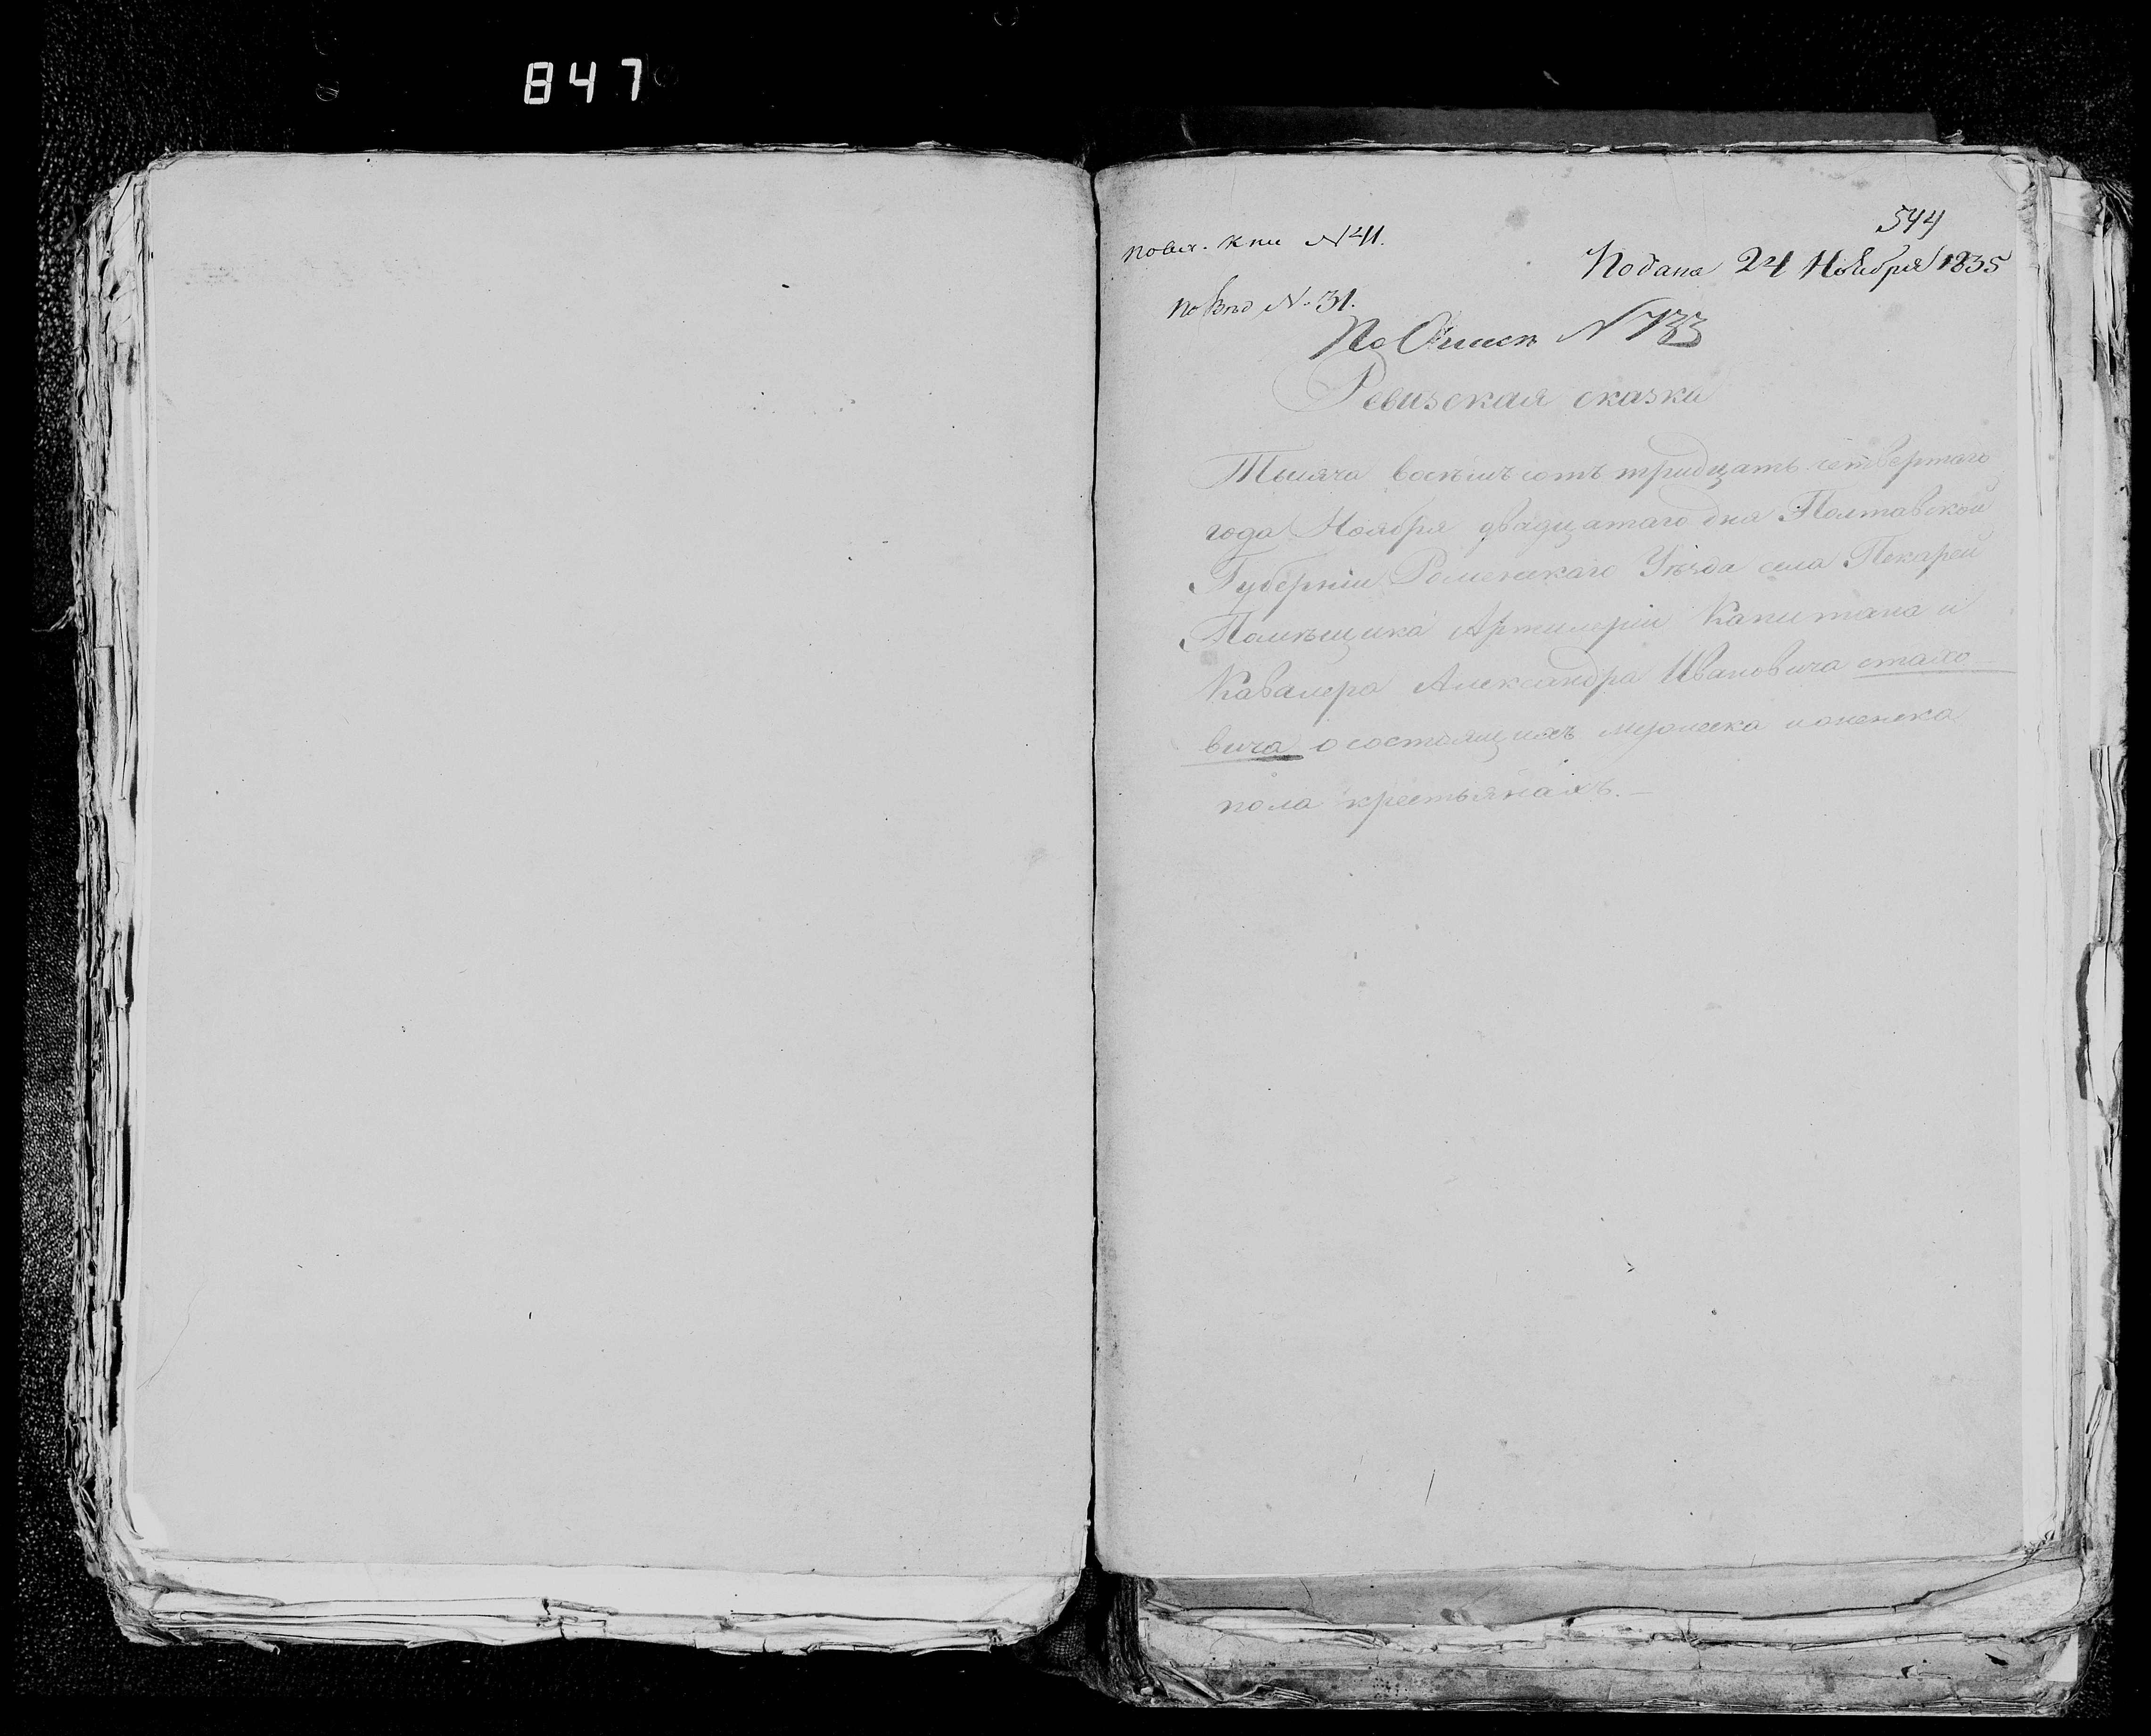 847
544
по алф. кни №41.
Подана 24 Ноября 1835
По Вѣд №. 31.
По Описи №733
Ревизская сказка
Тысяча восемьсотъ тридцать четвертаго
года Ноября двадцатаго дня Полтавской
Губерніи Роменскаго Уѣзда села Пекарей
Помѣщика Артилеріи Капитана и
Кавалера Александра Ивановича стахо
вича о состоящихъ мужеска и женска
пола крестьянахъ.—